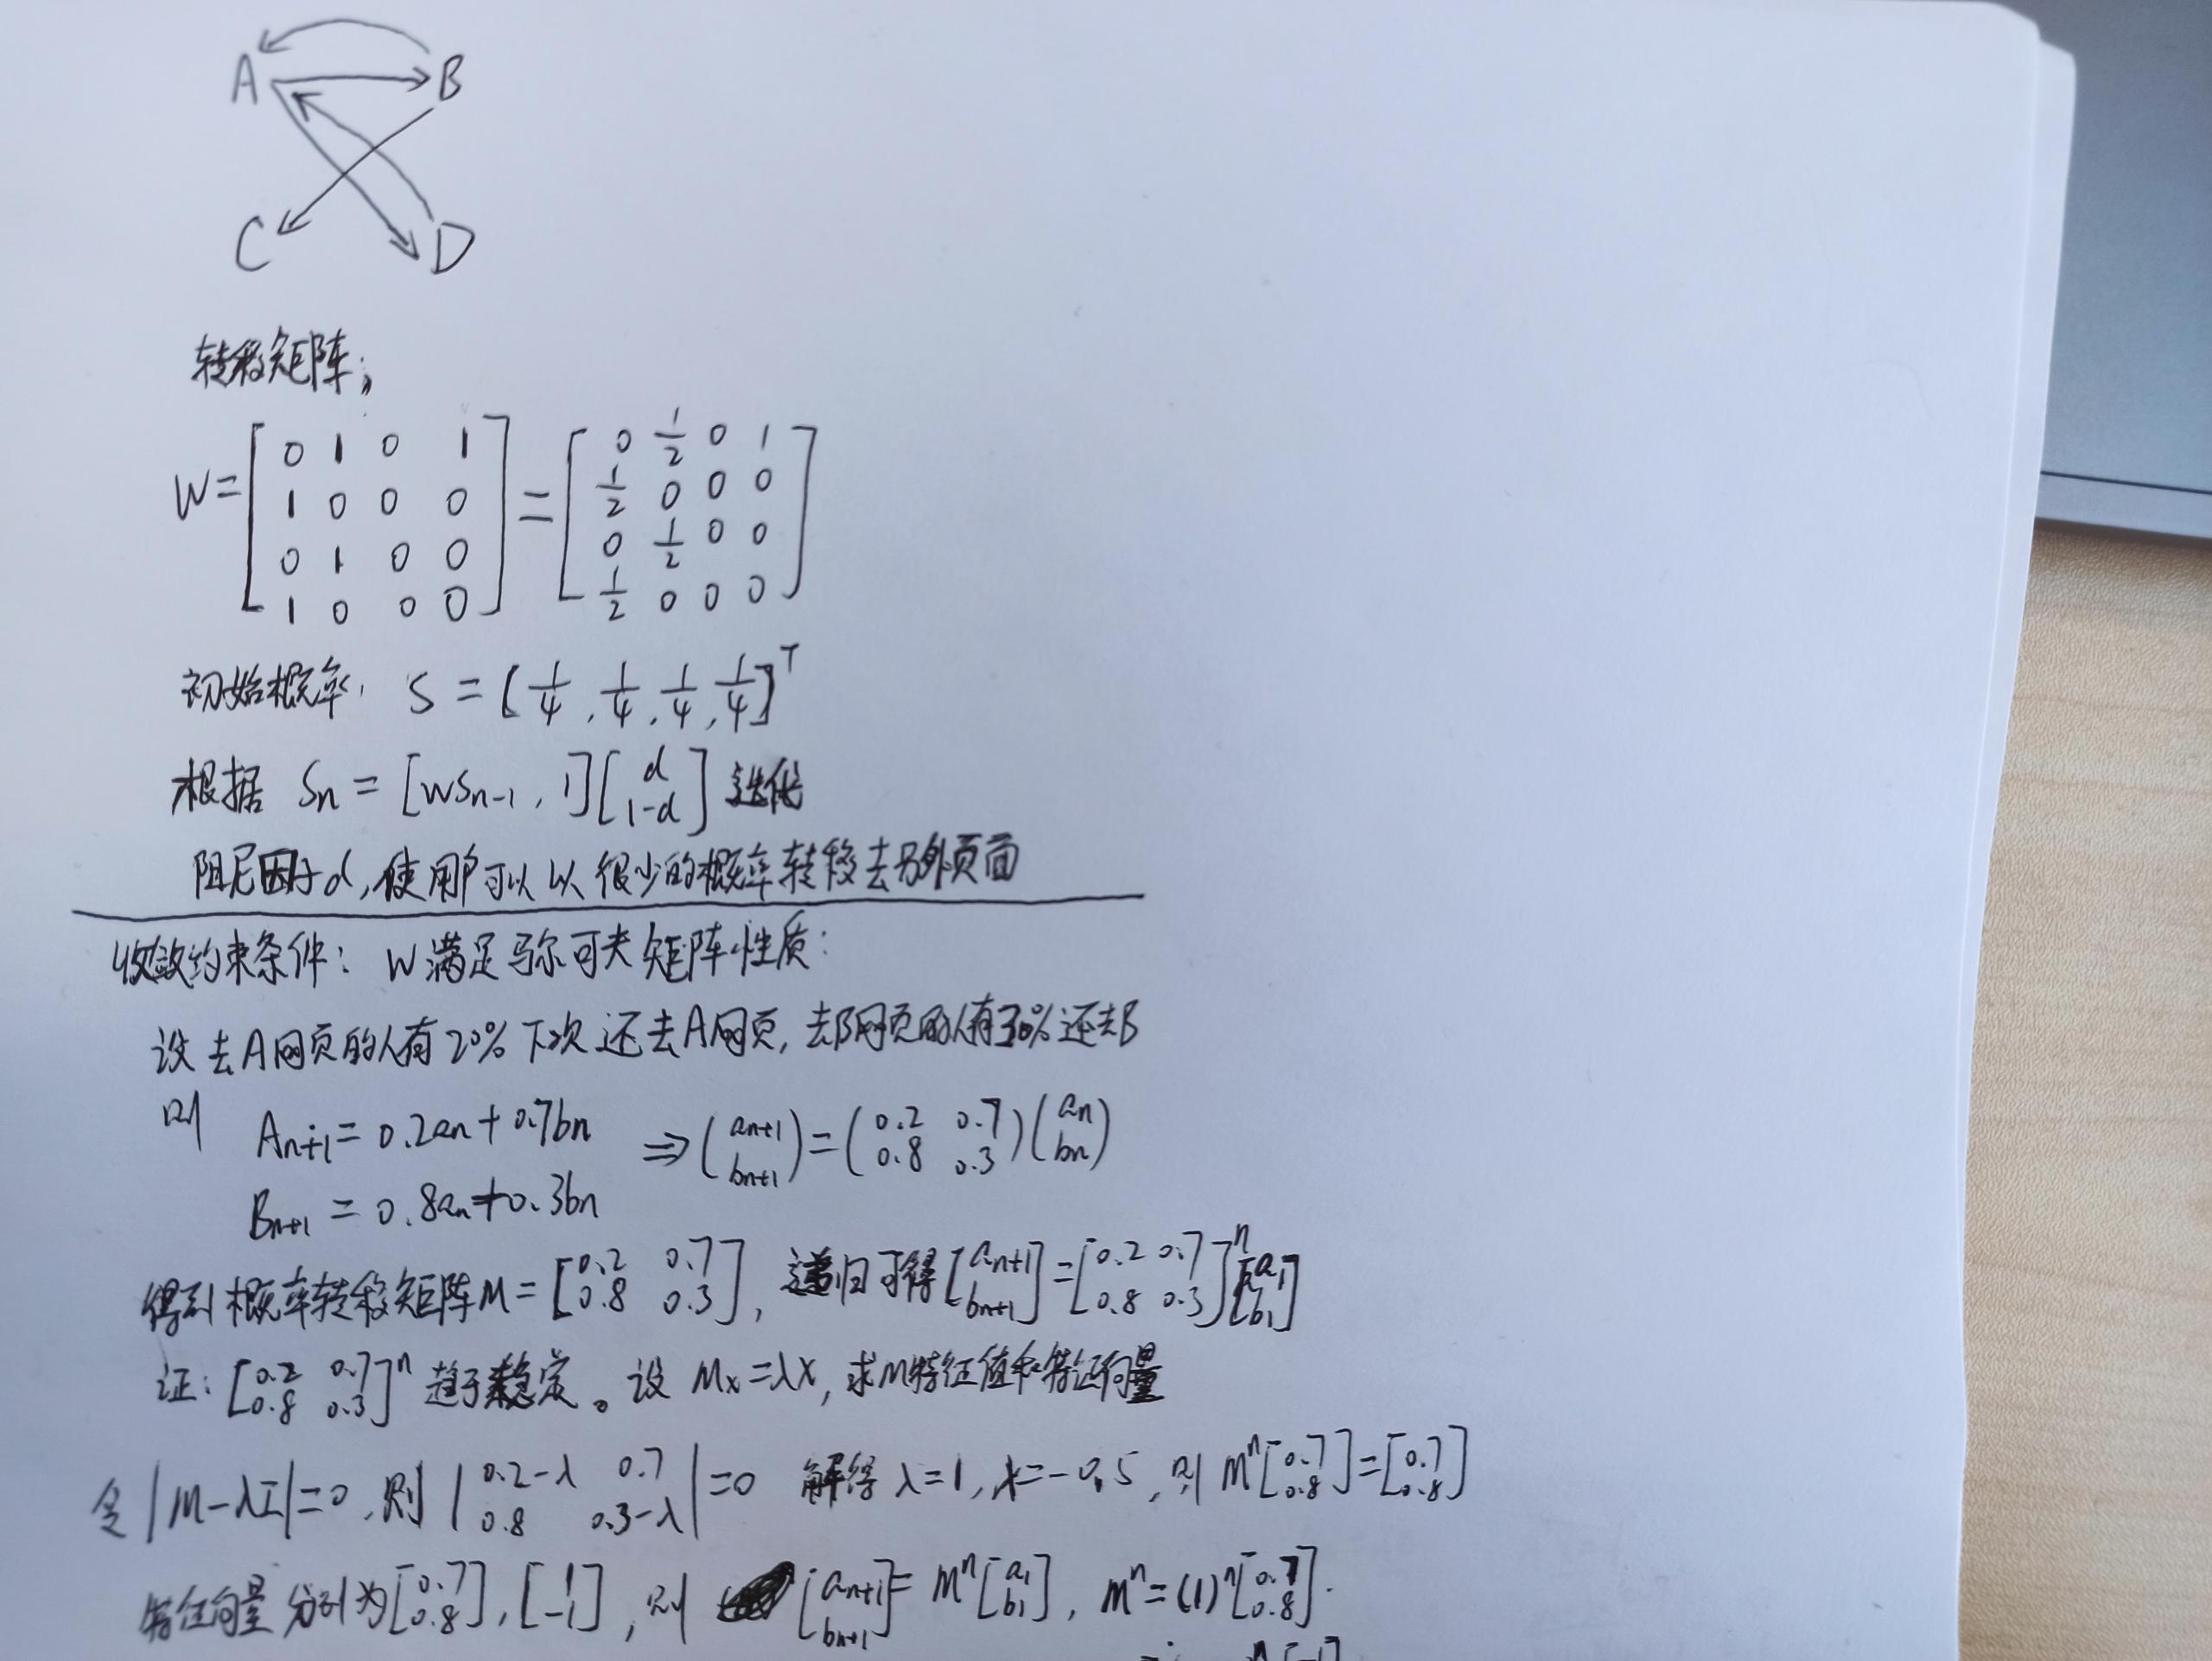 A B
C D
转移矩阵:
W = [0 1 0 1; 1 0 0 0; 0 1 0 0; 1 0 0 0] = [0 1/2 0 1; 1/2 0 0 0; 0 1/2 0 0; 1/2 0 0 0]
初始概率: S = [1/4, 1/4, 1/4, 1/4]^T
根据 Sn = [WSn-1, 1][d; 1-d] 迭代
阻尼因子d, 使用户可以以很少的概率转移去另外页面
收敛约束条件: W满足马尔可夫矩阵性质:
设去A网页的人有20%下次还去A网页, 去B网页的人有30%还去B
则 An+1 = 0.2an + 0.7bn ⇒ (an+1; bn+1) = (0.2 0.7; 0.8 0.3)(an; bn)
Bn+1 = 0.8an + 0.3bn
得到概率转移矩阵M = [0.2 0.7; 0.8 0.3], 递归可得 [an+1; bn+1] = [0.2 0.7; 0.8 0.3]^n [a1; b1]
证: [0.2 0.7; 0.8 0.3]^n 趋于稳定。设 Mx = λx, 求M特征值和特征向量
令 |M - λI| = 0, 则 |0.2-λ 0.7; 0.8 0.3-λ| = 0 解得 λ = 1, λ = -0.5, 则 M^n [0.7; 0.8] = [0.7; 0.8]
特征向量分别为 [0.7; 0.8], [1; -1], 则 [an+1; bn+1] = M^n [a1; b1], M^n = (1)^n [0.7; 0.8].